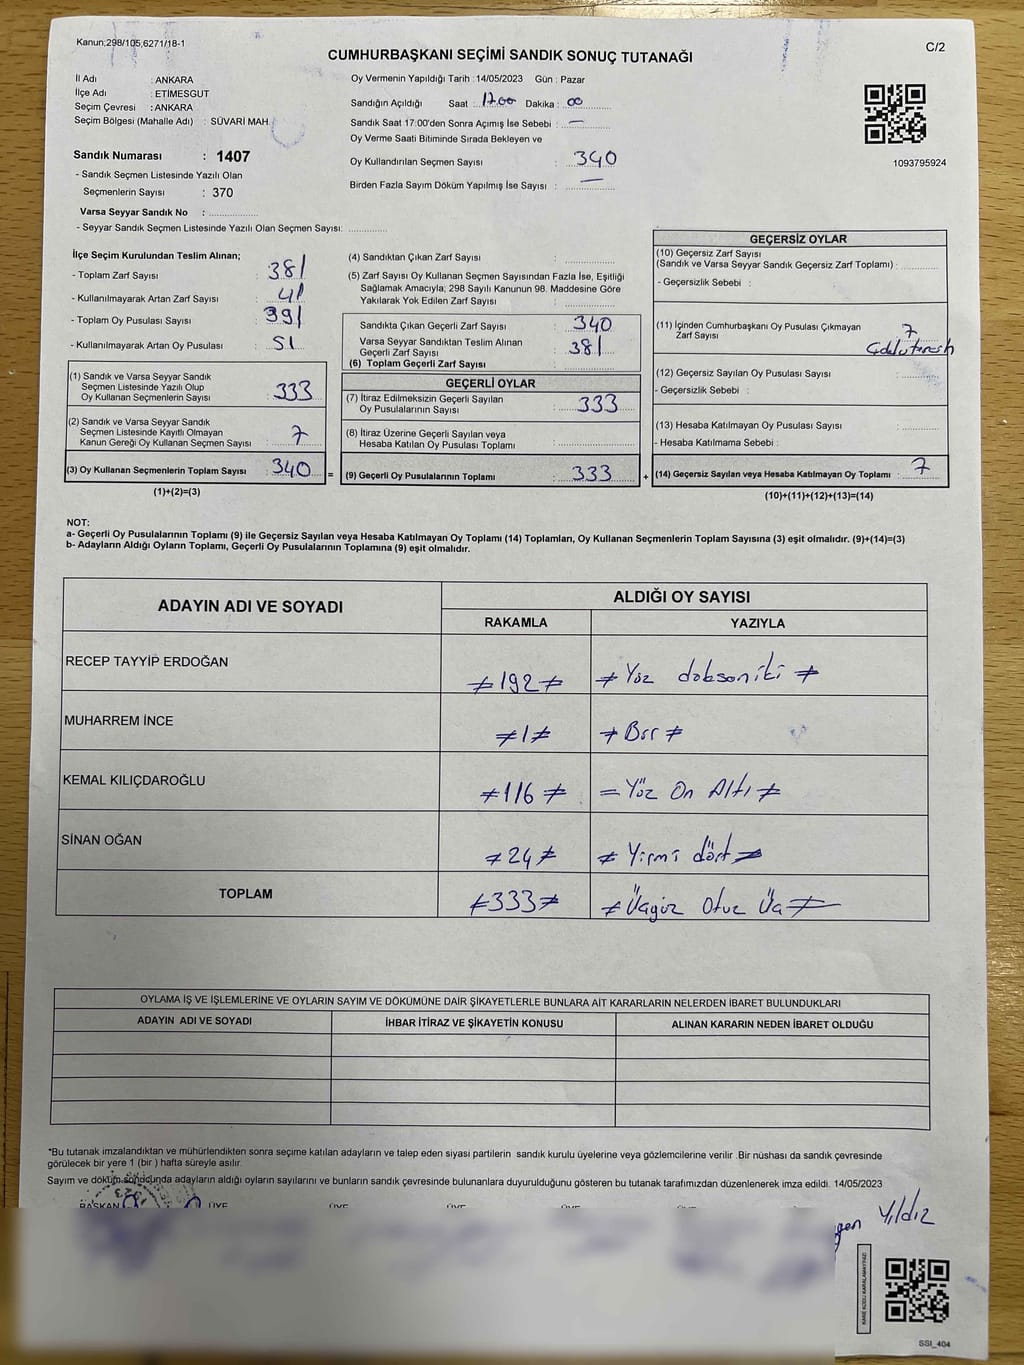 Kanun;298/105,6271/18-1
C/2
CUMHURBAŞKANI SEÇİMİ SANDIK SONUÇ TUTANAĞI
İl Adı : ANKARA
İlçe Adı : ETİMESGUT
Seçim Çevresi : ANKARA
Seçim Bölgesi (Mahalle Adı) : SÜVARİ MAH.
Sandık Numarası : 1407
- Sandık Seçmen Listesinde Yazılı Olan
Seçmenlerin Sayısı : 370
Varsa Seyyar Sandık No :
- Seyyar Sandık Seçmen Listesinde Yazılı Olan Seçmen Sayısı:
Oy Vermenin Yapıldığı Tarih : 14/05/2023 Gün : Pazar
Sandığın Açıldığı Saat : 17.00 Dakika : 00
Sandık Saat 17:00'den Sonra Açımış İse Sebebi : —
Oy Verme Saati Bitiminde Sırada Bekleyen ve
Oy Kullandırılan Seçmen Sayısı : 340
Birden Fazla Sayım Döküm Yapılmış İse Sayısı : —
1093795924
İlçe Seçim Kurulundan Teslim Alınan;
- Toplam Zarf Sayısı : 381
- Kullanılmayarak Artan Zarf Sayısı : 41
- Toplam Oy Pusulası Sayısı : 391
- Kullanılmayarak Artan Oy Pusulası : 51
(1) Sandık ve Varsa Seyyar Sandık
Seçmen Listesinde Yazılı Olup
Oy Kullanan Seçmenlerin Sayısı : 333
(2) Sandık ve Varsa Seyyar Sandık
Seçmen Listesinde Kayıtlı Olmayan
Kanun Gereği Oy Kullanan Seçmen Sayısı : 7
(3) Oy Kullanan Seçmenlerin Toplam Sayısı : 340
(1)+(2)=(3)
(4) Sandıktan Çıkan Zarf Sayısı :
(5) Zarf Sayısı Oy Kullanan Seçmen Sayısından Fazla İse, Eşitliği
Sağlamak Amacıyla; 298 Sayılı Kanunun 98. Maddesine Göre
Yakılarak Yok Edilen Zarf Sayısı :
Sandıkta Çıkan Geçerli Zarf Sayısı : 340
Varsa Seyyar Sandıktan Teslim Alınan
Geçerli Zarf Sayısı : 381
(6) Toplam Geçerli Zarf Sayısı :
GEÇERLİ OYLAR
(7) İtiraz Edilmeksizin Geçerli Sayılan
Oy Pusulalarının Sayısı : 333
(8) İtiraz Üzerine Geçerli Sayılan veya
Hesaba Katılan Oy Pusulası Toplamı :
= (9) Geçerli Oy Pusulalarının Toplamı : 333
GEÇERSİZ OYLAR
(10) Geçersiz Zarf Sayısı
(Sandık ve Varsa Seyyar Sandık Geçersiz Zarf Toplamı) :
- Geçersizlik Sebebi :
(11) İçinden Cumhurbaşkanı Oy Pusulası Çıkmayan
Zarf Sayısı : 7
(12) Geçersiz Sayılan Oy Pusulası Sayısı :
- Geçersizlik Sebebi :
(13) Hesaba Katılmayan Oy Pusulası Sayısı :
- Hesaba Katılmama Sebebi :
+ (14) Geçersiz Sayılan veya Hesaba Katılmayan Oy Toplamı : 7
(10)+(11)+(12)+(13)=(14)
NOT:
a- Geçerli Oy Pusulalarının Toplamı (9) ile Geçersiz Sayılan veya Hesaba Katılmayan Oy Toplamı (14) Toplamları, Oy Kullanan Seçmenlerin Toplam Sayısına (3) eşit olmalıdır. (9)+(14)=(3)
b- Adayların Aldığı Oyların Toplamı, Geçerli Oy Pusulalarının Toplamına (9) eşit olmalıdır.
ADAYIN ADI VE SOYADI ALDIĞI OY SAYISI
RAKAMLA YAZIYLA
RECEP TAYYİP ERDOĞAN ≠192≠ ≠ Yüz doksaniki ≠
MUHARREM İNCE ≠1≠ ≠ Bir ≠
KEMAL KILIÇDAROĞLU ≠116≠ = Yüz On Altı ≠
SİNAN OĞAN ≠24≠ ≠ Yirmi dört ≠
TOPLAM ≠333≠ ≠ Üçyüz Otuz Üç ≠
OYLAMA İŞ VE İŞLEMLERİNE VE OYLARIN SAYIM VE DÖKÜMÜNE DAİR ŞİKAYETLERLE BUNLARA AİT KARARLARIN NELERDEN İBARET BULUNDUKLARI
ADAYIN ADI VE SOYADI İHBAR İTİRAZ VE ŞİKAYETİN KONUSU ALINAN KARARIN NEDEN İBARET OLDUĞU
*Bu tutanak imzalandıktan ve mühürlendikten sonra seçime katılan adayların ve talep eden siyasi partilerin sandık kurulu üyelerine veya gözlemcilerine verilir .Bir nüshası da sandık çevresinde
görülecek bir yere 1 (bir ) hafta süreyle asılır.
Sayım ve döküm sonucunda adayların aldığı oyların sayılarını ve bunların sandık çevresinde bulunanlara duyurulduğunu gösteren bu tutanak tarafımızdan düzenlenerek imza edildi. 14/05/2023
BAŞKAN ÜYE ÜYE ÜYE ÜYE ÜYE
Yıldız
KARE KODU KARALAMAYINIZ!
SSI_404